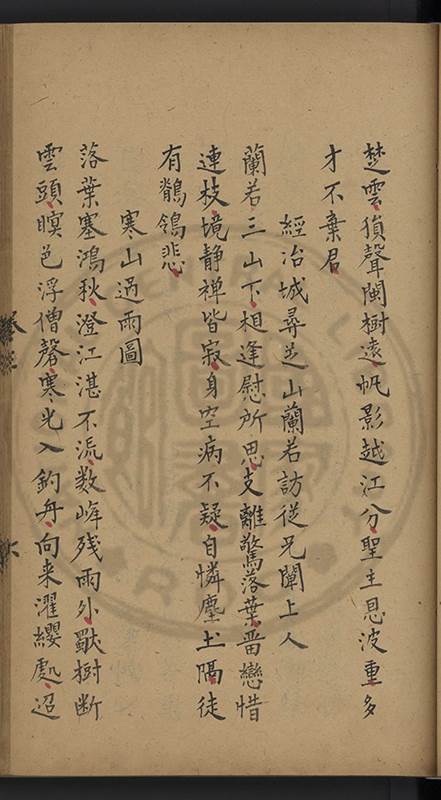 楚雲猿聲閩樹遠帆影越江分聖主恩波重多
才不棄君
經冶城尋芝山蘭若訪從兄闡上人
蘭若三山下相逢慰所思支離驚落葉番戀惜
連枝境静禅皆寂身空病不疑自憐塵土隔徒
有鶺鴒悲
寒山過雨圖
落葉塞鴻秋澄江湛不流数峰残雨外獸樹断
雲頭暝色浮僧磬寒光入釣舟向来濯纓處迢